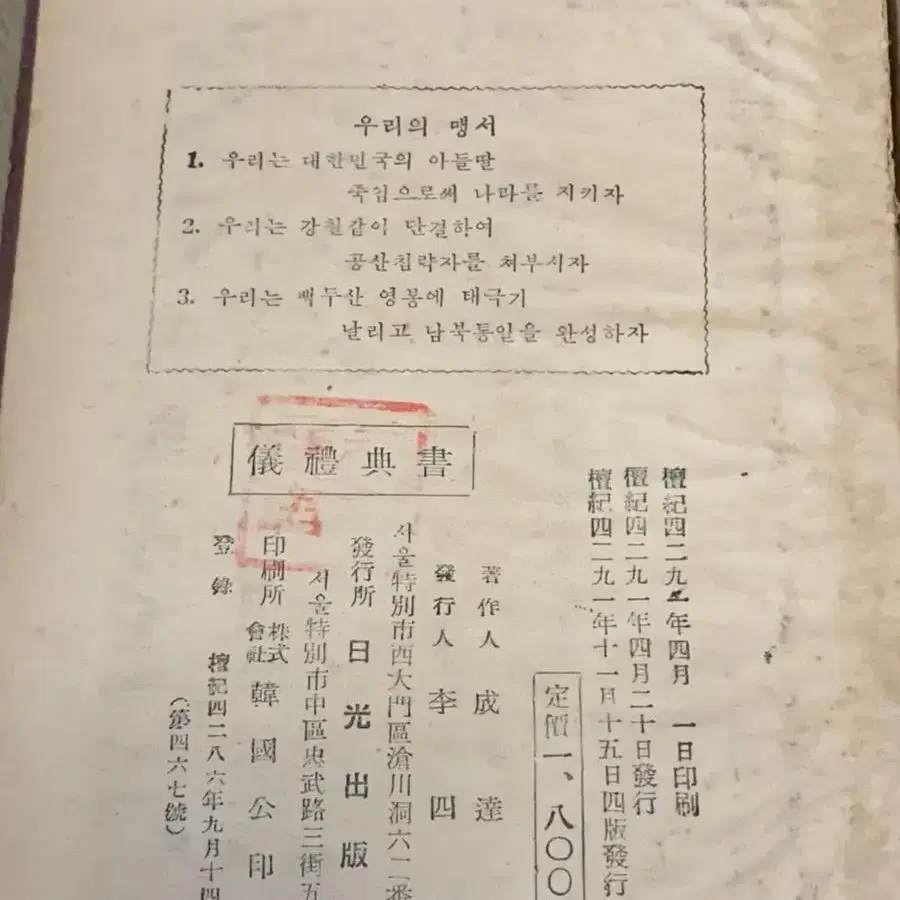 우리의 맹서
1. 우리는 대한민국의 아들딸
죽엄으로써 나라를 지키자
2. 우리는 강철같이 단결하여
공산침략자를 처부시자
3. 우리는 백두산 영봉에 태극기
날리고 남북통일을 완성하자
儀禮典書
檀紀四二九一年四月 一日印刷
檀紀四二九一年四月二十日發行
檀紀四二九一年十一月十五日四版發行
定價一、八〇〇
著作人 成達
發行人 李四
서울特別市西大門區滄川洞六二番
發行所 日光出版
서울特別市中區忠武路三街五
印刷所 株式會社 韓國公印
登錄 檀紀四二八六年九月十四
(第四六七號)